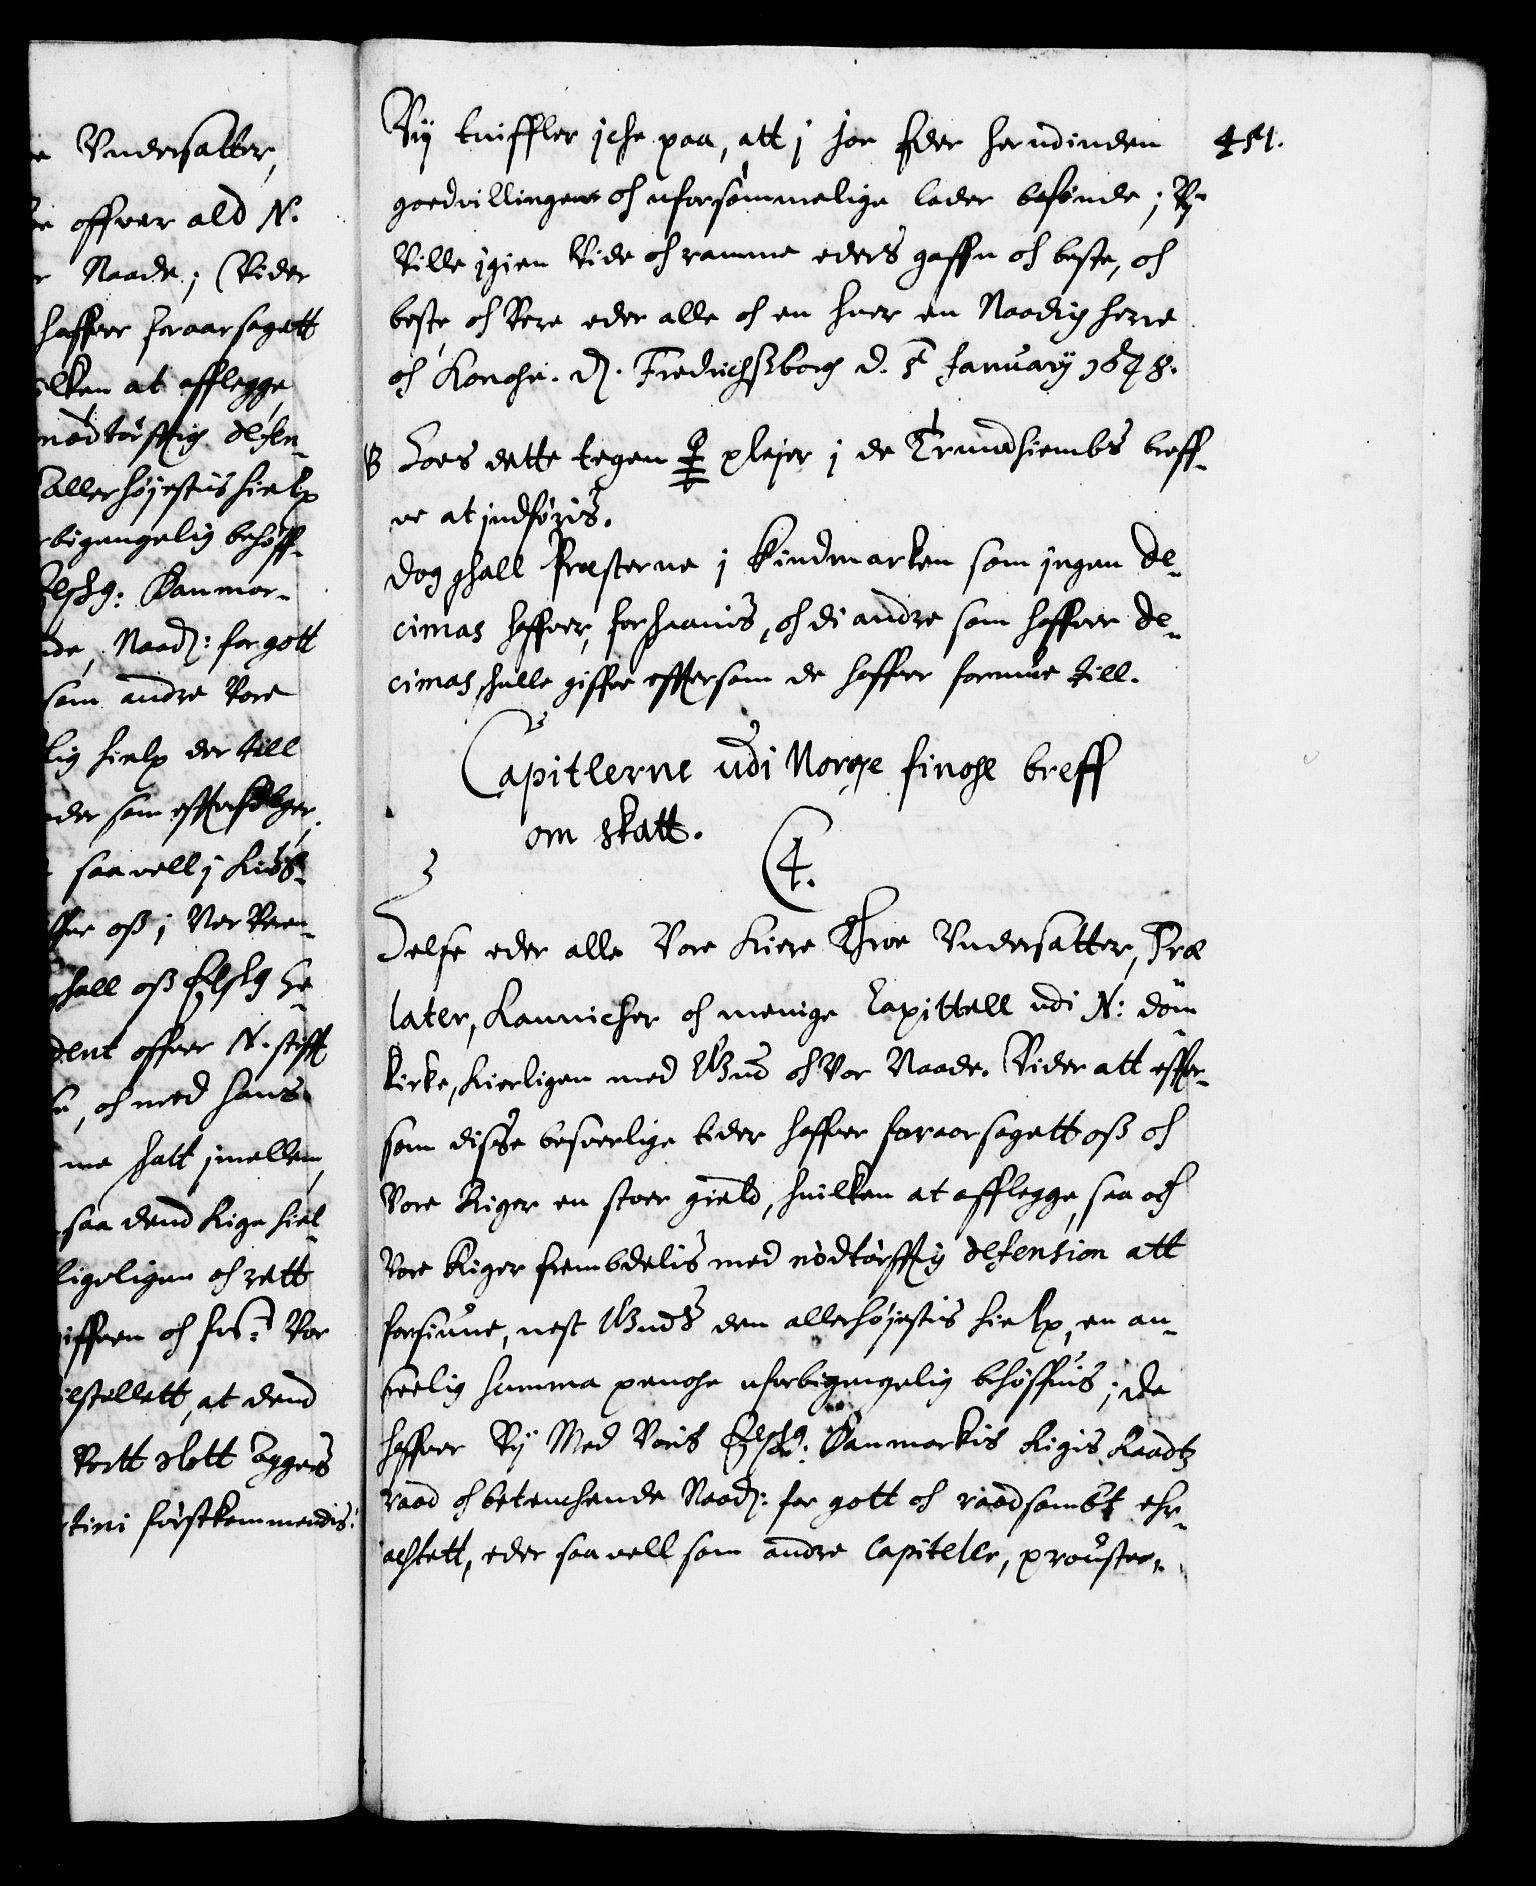 e Undersatter,
offuer ald N.
r Naade; Vider
haffuer foraarsagett
ilken at afflegge
nødtørfftig defen-
Allerhøjestis hielp
rbigengelig behøff-
Elshg: Danmar-
de, Naad: for gott
som andre Vore
lig hielp der till
der som effterfølger,
saa vell j Kiøb-
oß j Vor
shall oß Elshg He
dent offuer N. stifft
och med hans
me shatt jmellem,
saa dend Rige hiel-
ligeligen och rett
giffuen och Vor
estellett, at dend
Vortt Slott Aggers
tini førstkommendis:
451.
Vij tuiffler jche paa, att j jo Eder herudinden
goedvilligen och uforsømmelige lader befinde; Vj
Ville jgien Vide och ramme eders gaffn och beste, och
beste, och Vere eder alle och en huer en Naadig Herre
och Konge. D. Fredrichsborg d. 5 January 1648.
B Hoes dette tegen plejer j de Trundhiembs breff-
ue at jndføris.
Dog shall Præsterne j Findmarken som jngen de-
cimas haffuer, forshaanis, och di andre som haffuer de-
cimas, shulle giffue effter som de haffuer formue till.
Capitlerne udi Norge finge breff
om skatt.
C4.
Helse eder alle Vore Kiere Throe Undersatter, Præ
later, Kannicher och menige Capittell udi N: døm
kirke, kierligen med Gud och Vor Naade. Vider att effter-
som disse besverlige tider haffuer foraarsagett oß och
Vore Riger en stoer gield, huilken at afflegge, saa och
Vore Riger frembdelis med nødtørfftig defension att
forsiune, nest Guds den allerhøjestis hielp, en an-
seelig summa penge uforbigengelig behøffuis; Da
haffuer Vij Med Voris Elshg: Danmarkis Rigis Raadtz
raad och betenchende Naad: for gott och raadsambt ehr-
achtett, eder saa vell som andre Capiteller, prouster,